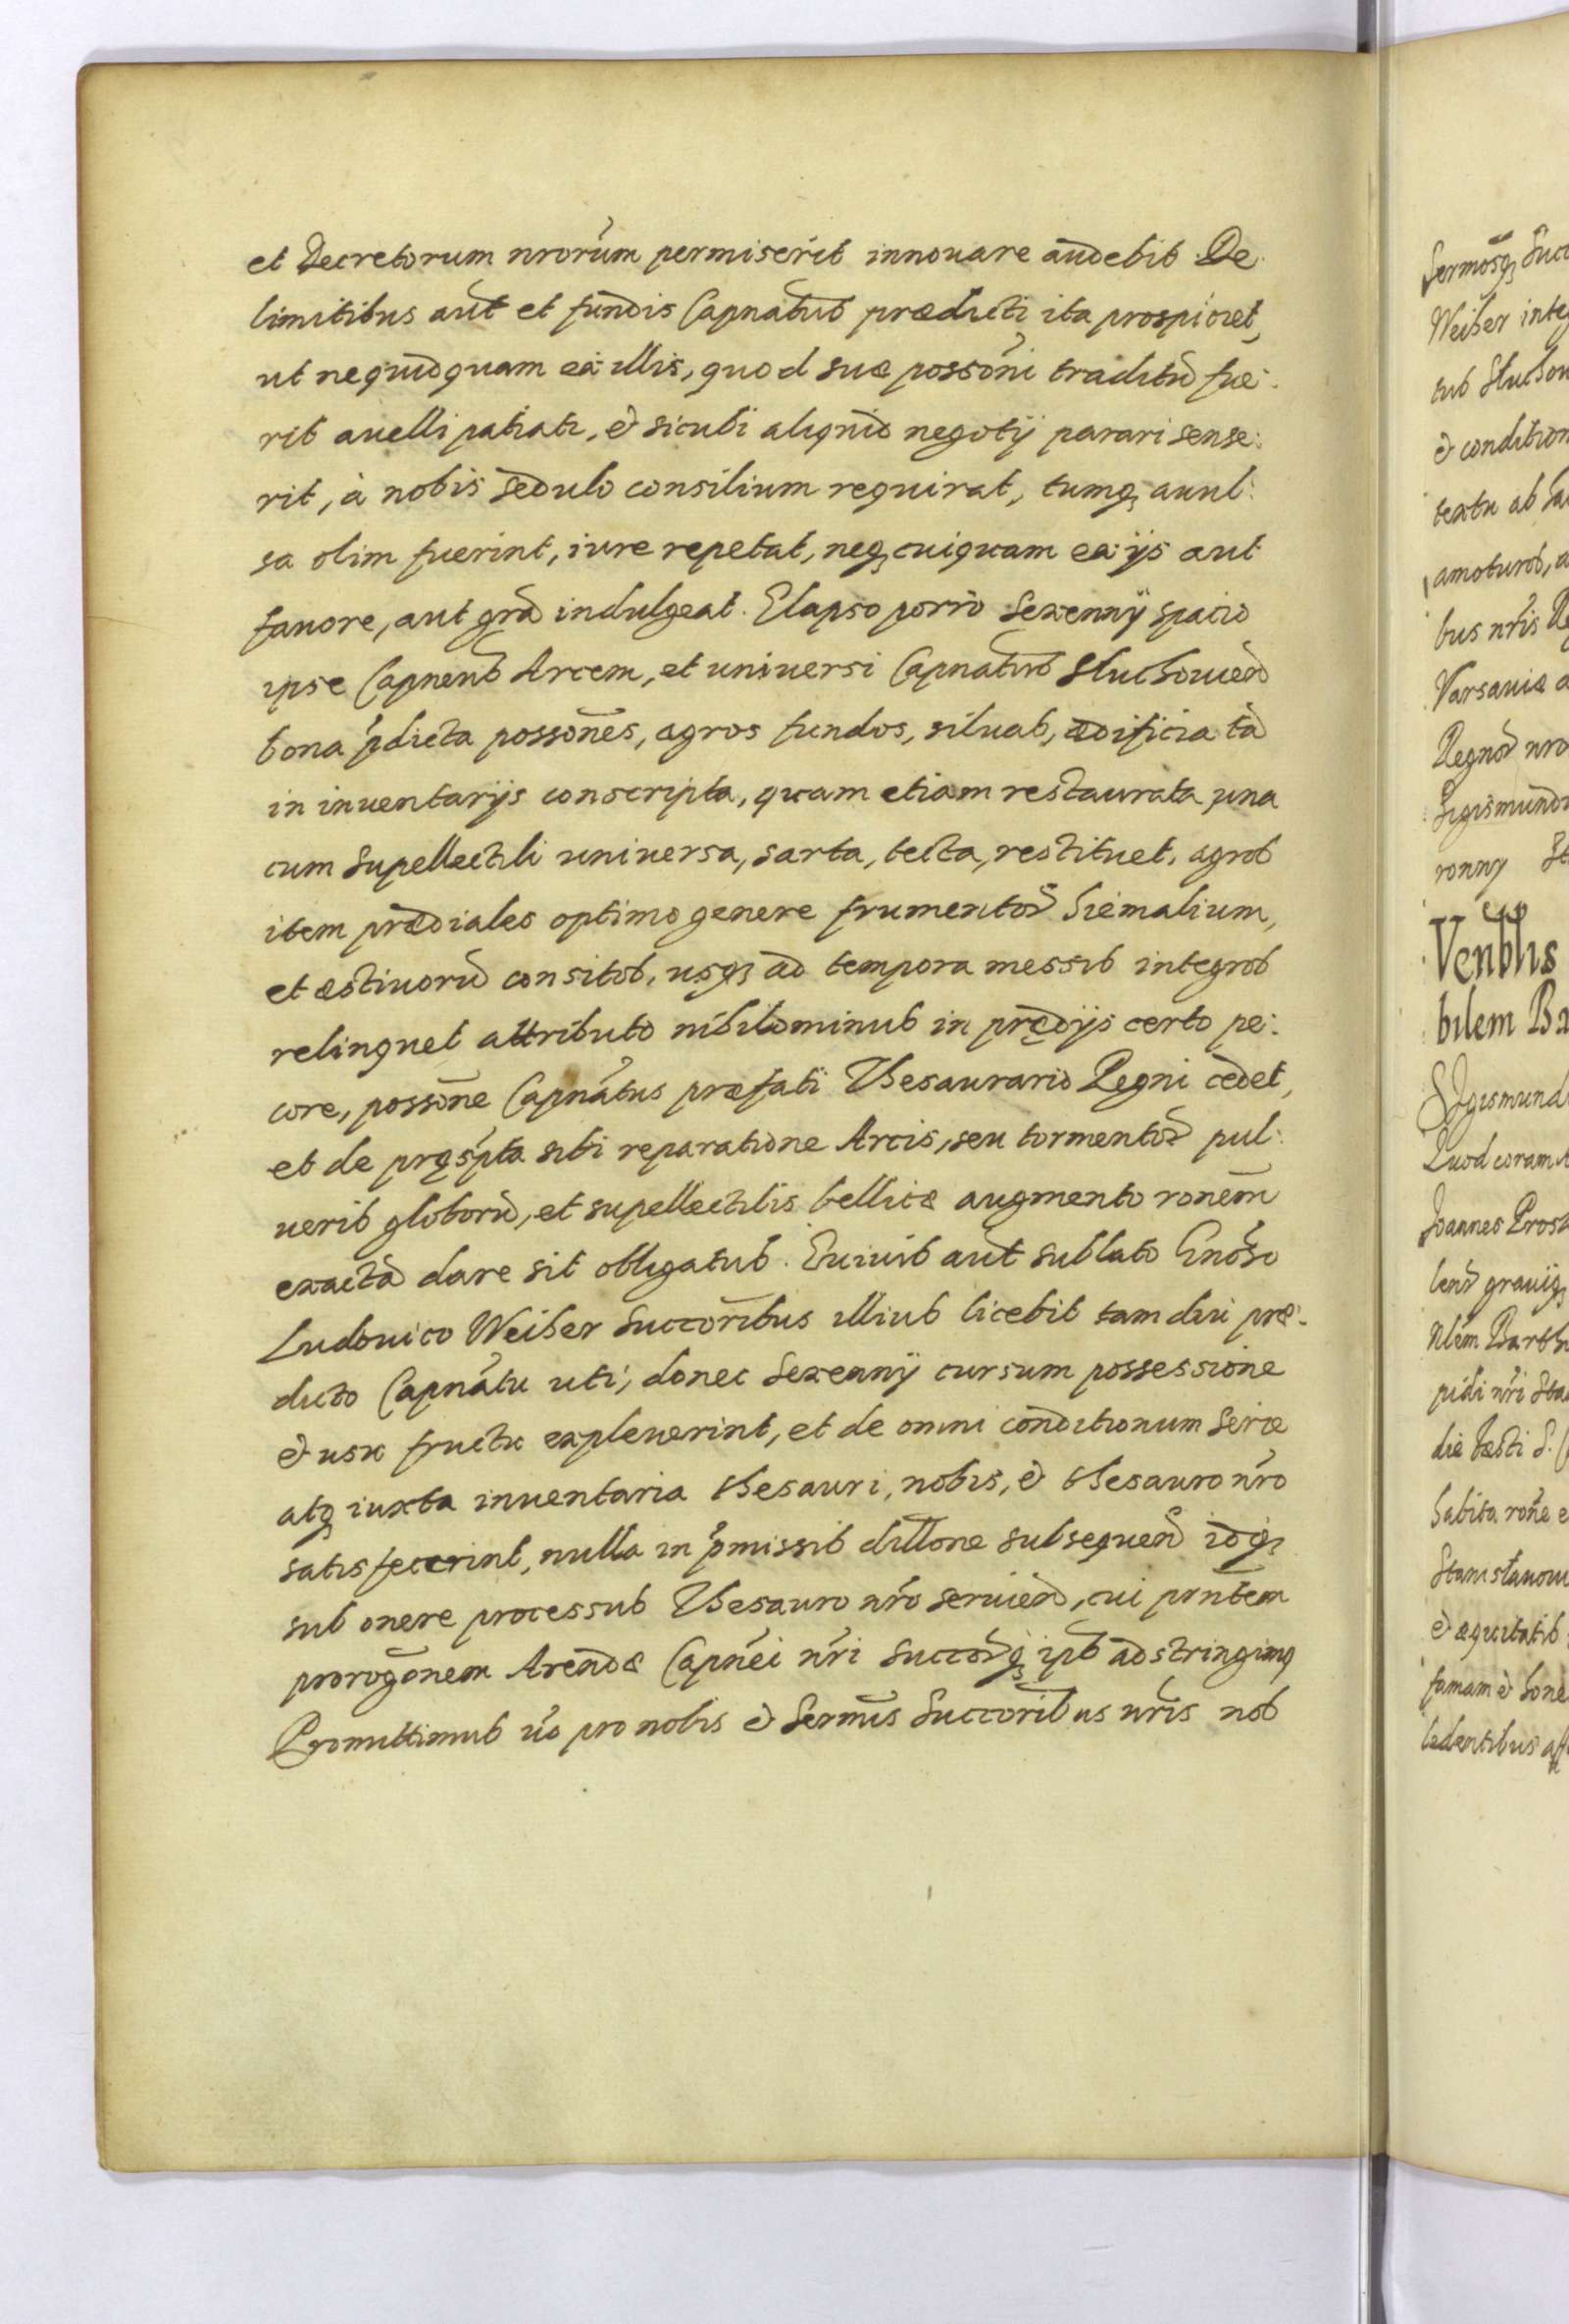 et Decretorum nrorum permiserit innouare audebit. De
limitibus aut et fundis Capnatus prædicti ita prospiciet,
ut nequidquam ex illis, quod suæ possoni traditu fue:
rit auelli patiatr, & sicubi aliquid negotij parari sense:
rit, à nobis sedulo consilium requirat, tumq auul:
sa olim fuerint, iure repetat, neq cuiquam ex ijs aut
fauore, aut gra indulgeat. Elapso porro sexennij spacio
ipse Capneus Arcem, et uniuersi Capnatus Sluchouien
bona pdicta possones, agros fundos, siluas, ædificia ta
in inuentarijs conscripta, quam etiam restaurata una
cum supellectili uniuersa, sarta, tecta, restituet, agros
item prædiales optimo genere frumentor hiemalium,
et æstiuoru consitos, usq ad tempora messis integros
relinquet attributo nihilominus in prędijs certo pe:
core, possone Capnatus præfati Thesaurario Regni cedet,
et de pręspta sibi reparatione Arcis, seu tormentor pul:
ueris globoru, et supellectilis bellicæ augmento ronem
exacta dare sit obligatus. Euiuis aut sublato Gnoso
Ludouico Weiher succoribus illius licebit tam diu præ:
dicto Capnatu uti, donec sexennij cursum possessione
& usu fructu expleuerint, et de omni conditionum serie
atq iuxta inuentaria thesauri, nobis, & thesauro nro
satis fecerint, nulla in pmissis dillone subsequen idq
sub onere processus Thesauro nro seruien, cui pntem
prorogonem Arendæ Capnei nri succorq ips adstringimq
Promittimus uo pro nobis & Sermis Succoribus nris nos
Sermosq Succ
Weiher integ
tus Sluchou
& condition
textu ab ha
amoturos, a
bus nris Re
Varsauiæ a
Regnor nro
Sigismundu
ronny St
Venblis
bilem Ba
Sigismund
Quod coram
Joannes Pros
lens grauiq
Nlem Barth
pidi nri Sta
die festi S.
habita rone e
Stanislauou
& æquitatis
famam & hone
ledentibus aff